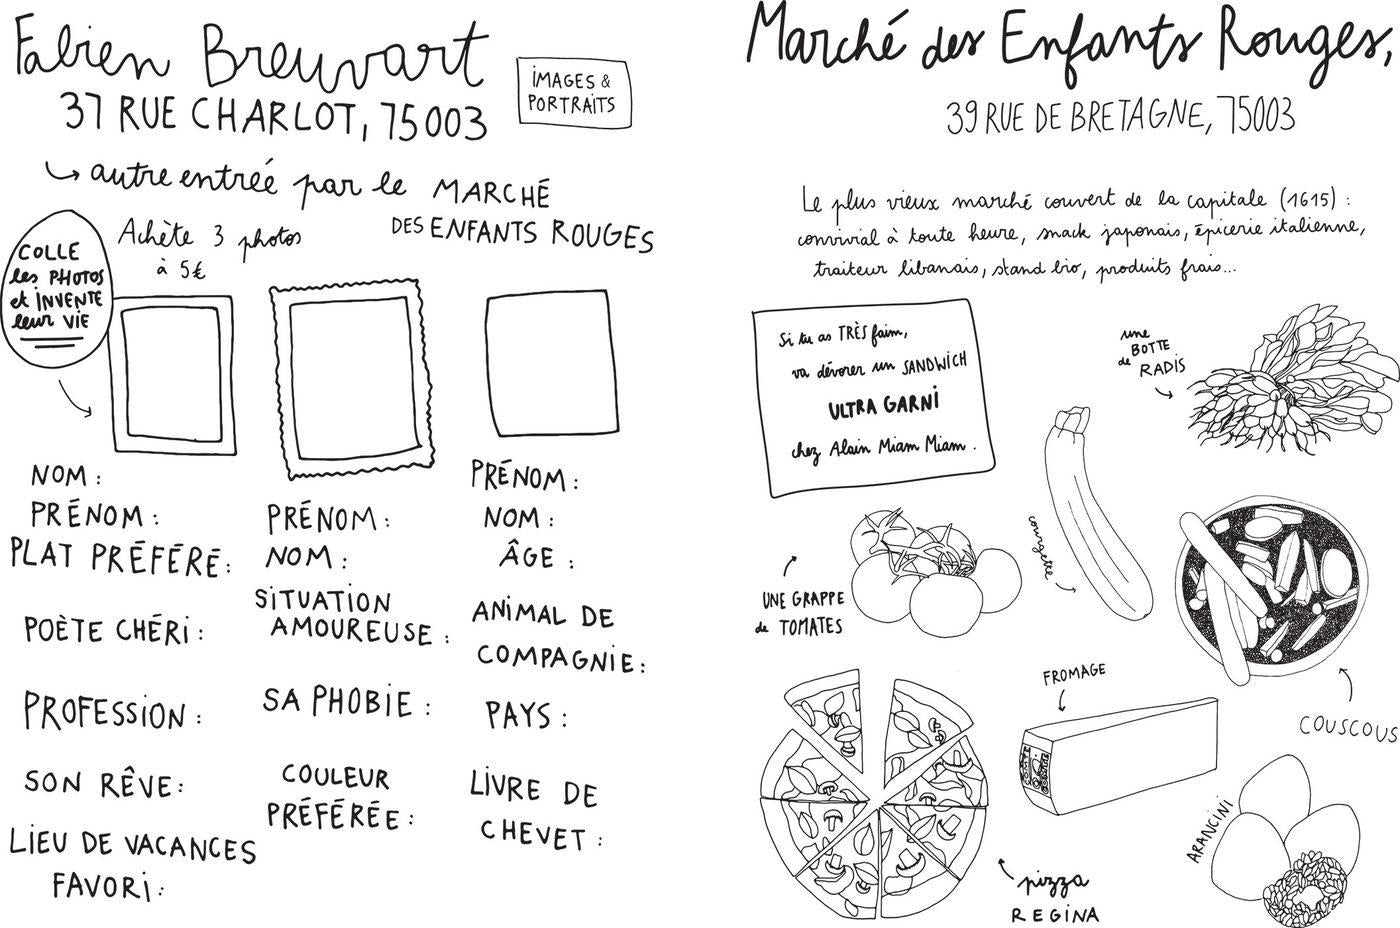 Fabien Breuvart
37 RUE CHARLOT, 75003
IMAGES &
PORTRAITS
autre entrée par le MARCHÉ
DES ENFANTS ROUGES
Achète 3 photos
à 5€
COLLE
les PHOTOS
et INVENTE
leur VIE
NOM :
PRÉNOM :
PLAT PRÉFÉRÉ :
POÈTE CHÉRI :
PROFESSION :
SON RÊVE :
LIEU DE VACANCES
FAVORI :
PRÉNOM :
NOM :
SITUATION
AMOUREUSE :
SA PHOBIE :
COULEUR
PRÉFÉRÉE :
PRÉNOM :
NOM :
ÂGE :
ANIMAL DE
COMPAGNIE :
PAYS :
LIVRE DE
CHEVET :
Marché des Enfants Rouges,
39 RUE DE BRETAGNE, 75003
Le plus vieux marché couvert de la capitale (1615) :
convivial à toute heure, snack japonais, épicerie italienne,
traiteur libanais, stand bio, produits frais...
Si tu as TRÈS faim,
va dévorer un SANDWICH
ULTRA GARNI
chez Alain Miam Miam.
une
BOTTE
de RADIS
courgette
UNE GRAPPE
de TOMATES
COUSCOUS
FROMAGE
COMTÉ
ARANCINI
pizza
REGINA